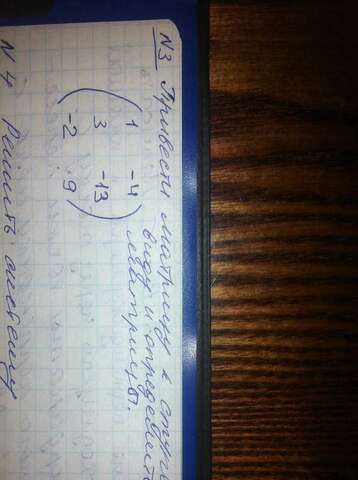 N3 Привести матрицу к ступе
виду и определить
матрицы.
1 -4
3 -13
-2 9
N4 Решить систему